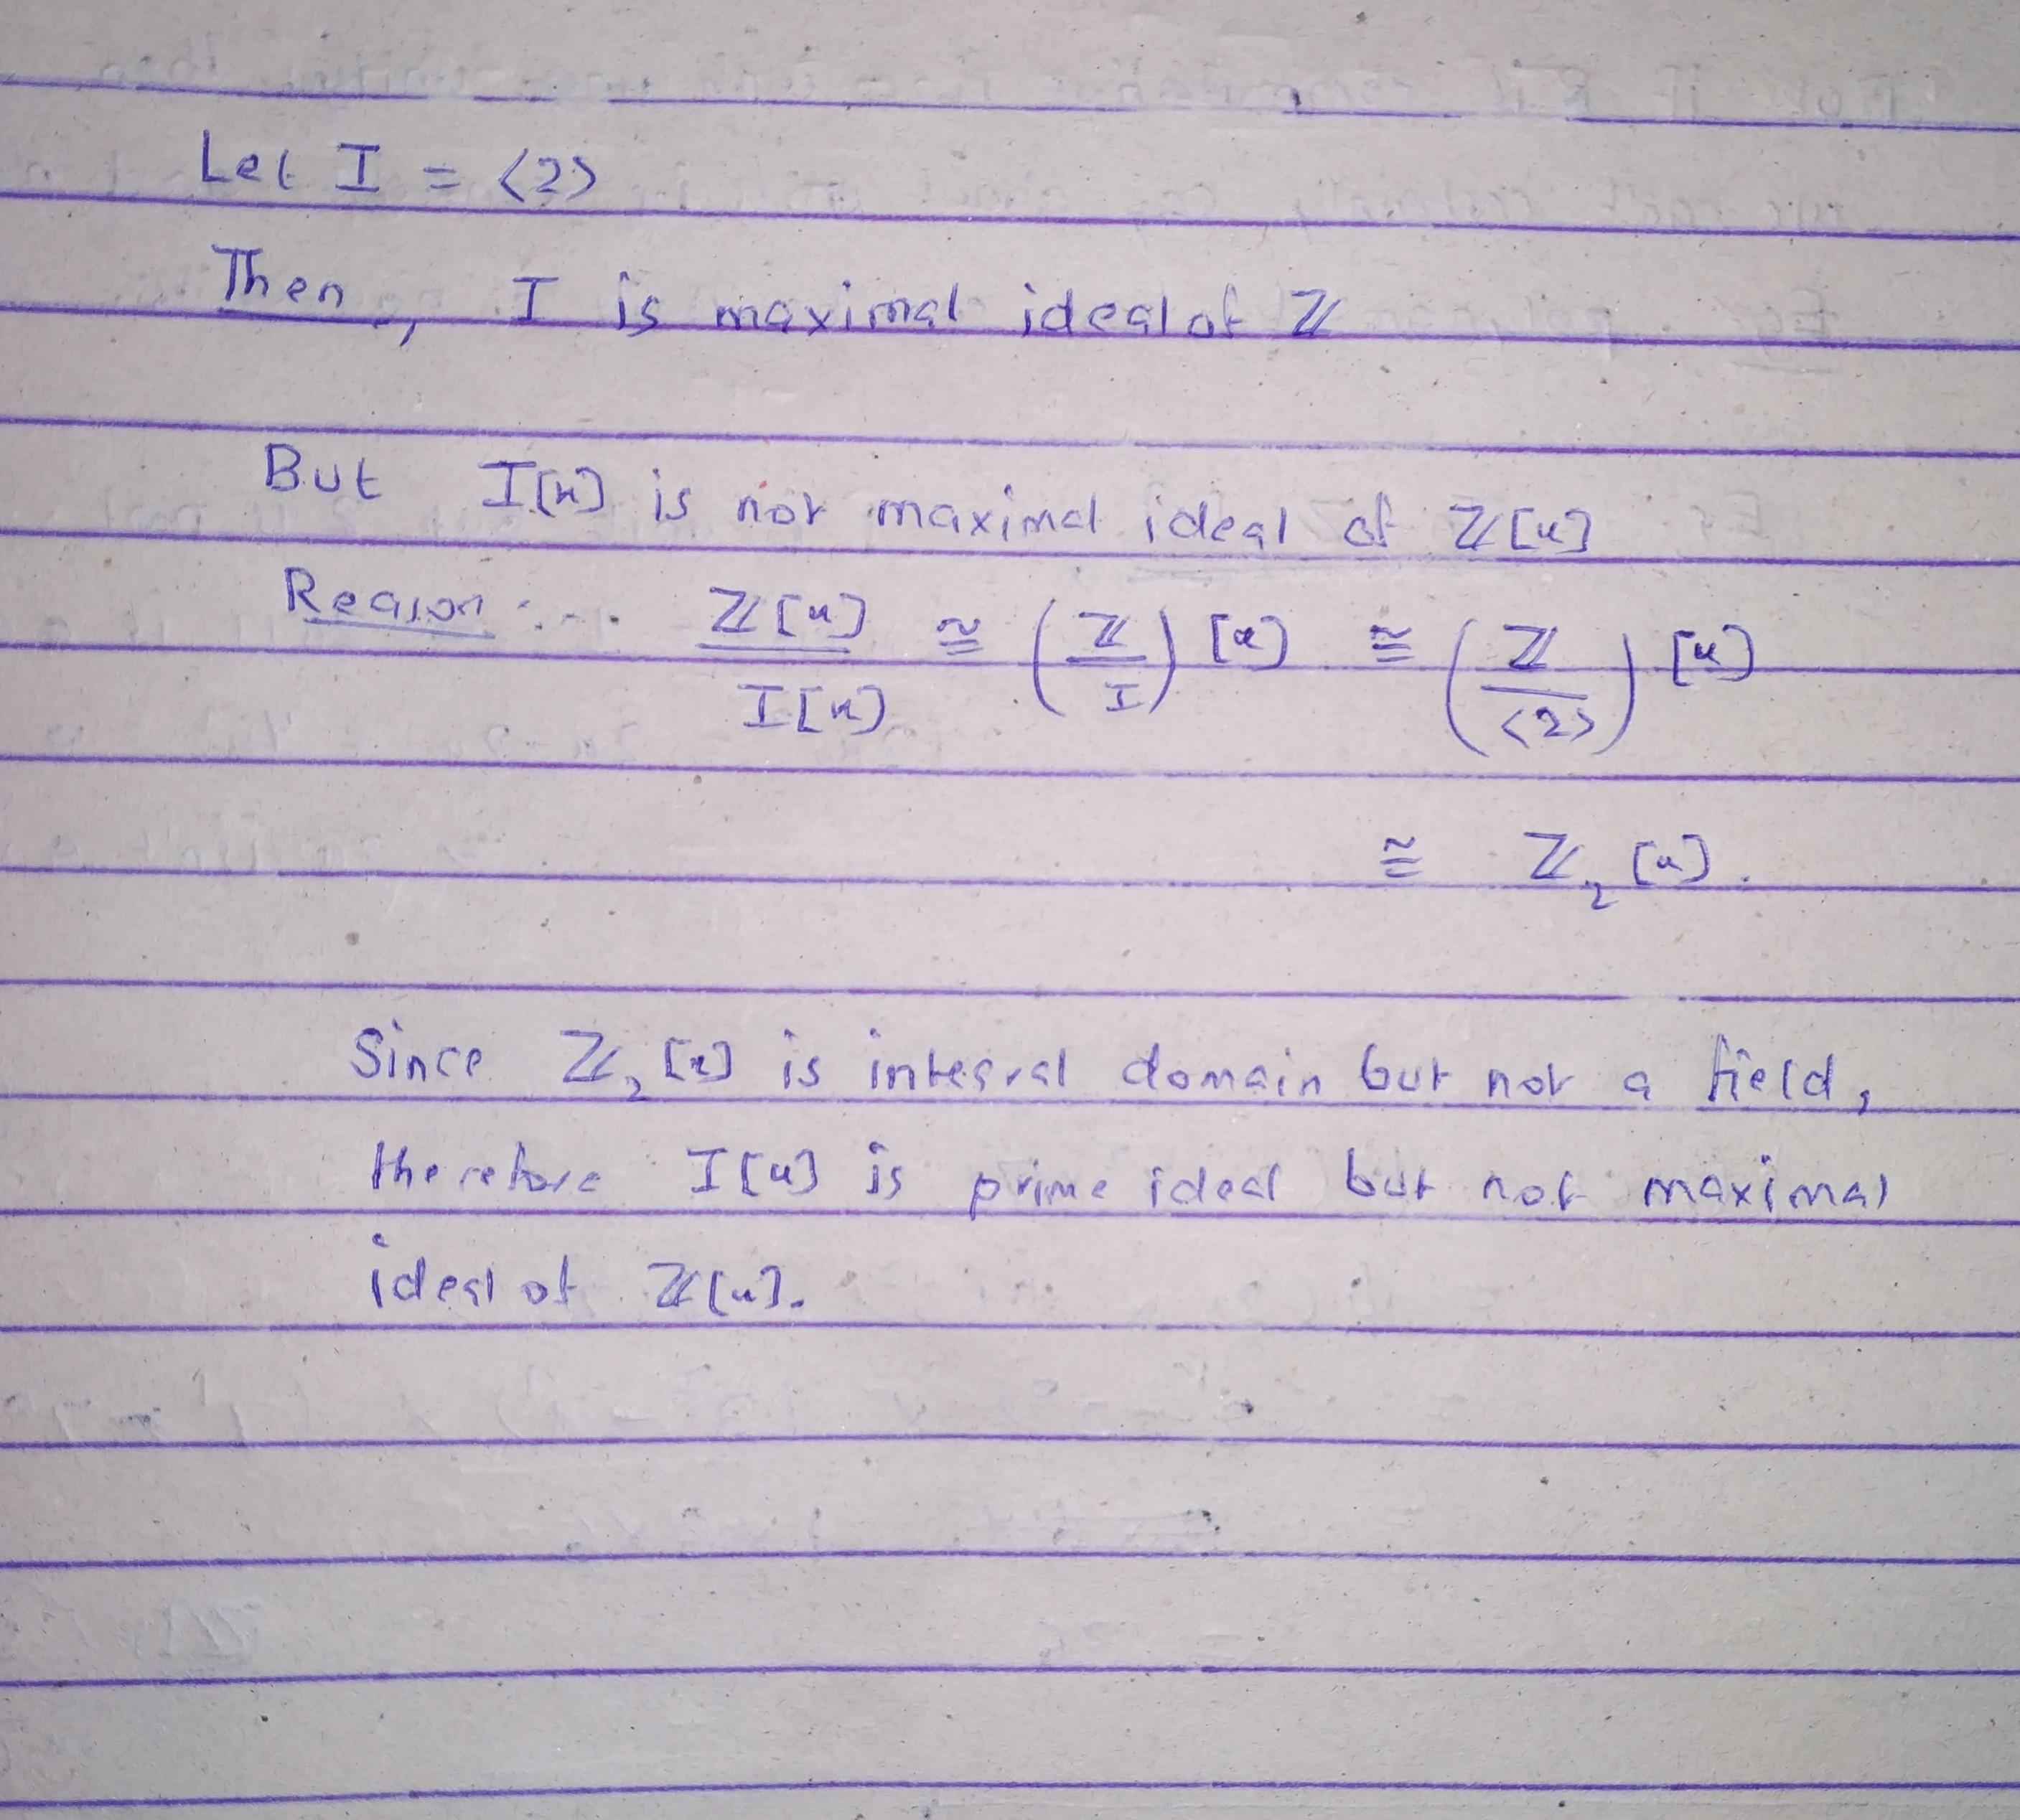 Let I = <2>
Then, I is maximal ideal of ℤ
But I[x] is not maximal ideal of ℤ[x]
Reason :-. ℤ[x]/I[x] ≅ (ℤ/I)[x] ≅ (ℤ/<2>)[x]
≅ ℤ₂[x].
Since ℤ₂[x] is integral domain but not a field,
therefore I[x] is prime ideal but not maximal
ideal of ℤ[x].